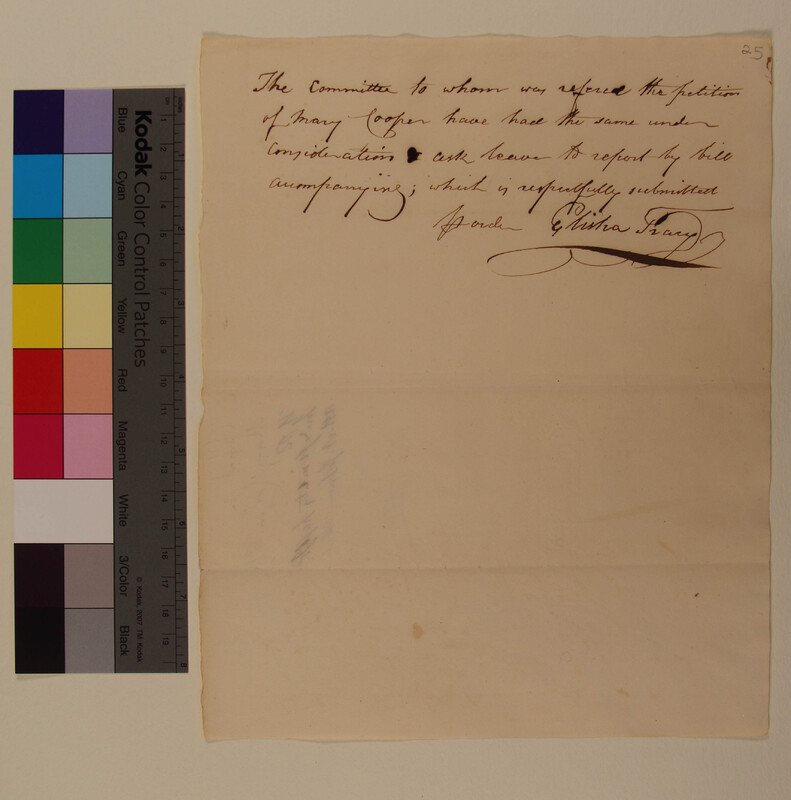 25
The Committee to whom was refered the petition
of Mary Cooper have had the same under
Consideration & ask leave to report by bill
acompanying; which is respectfully submitted
pr order Elisha Tracy
Kodak Color Control Patches
Blue
Cyan
Green
Yellow
Red
Magenta
White
3/Color
Black
© Kodak, 2007 TM: Kodak
1
2
3
4
5
6
7
8
9
10
11
12
13
14
15
16
17
18
19